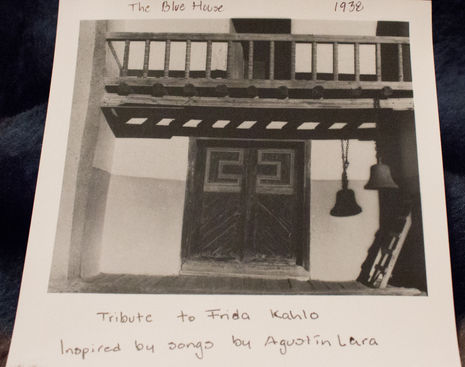 The Blue House 1938
Tribute to Frida Kahlo
Inspired by songs by Agustín Lara